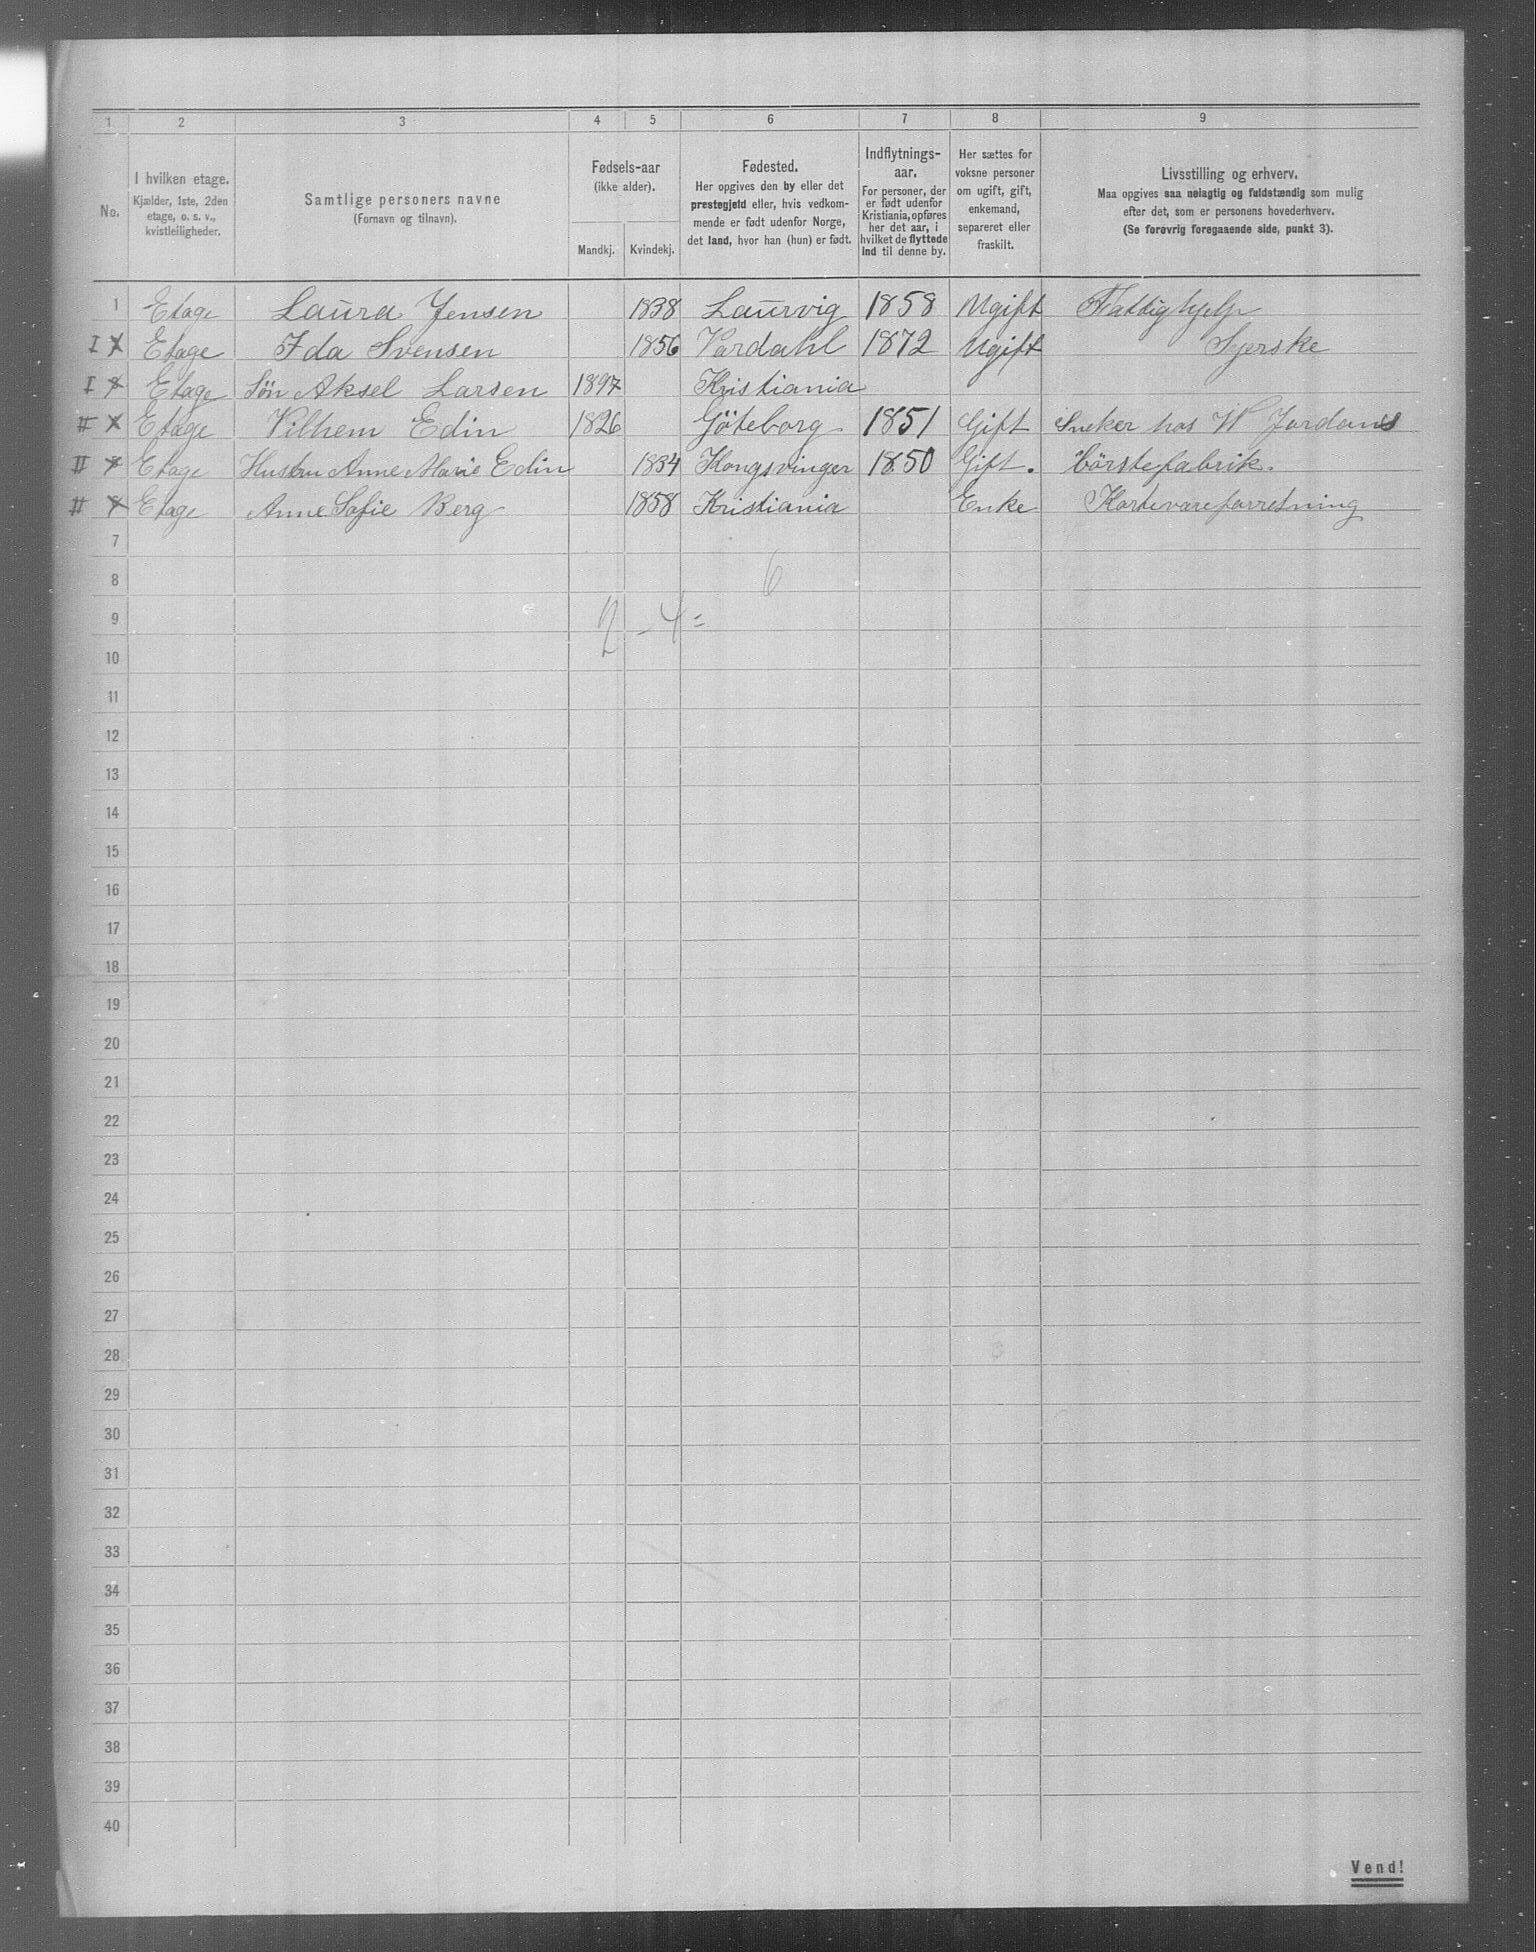 1 2 3 4 5 6 7 8 9
No.
I hvilken etage.
Kjælder, 1ste, 2den
etage, o. s. v.,
kvistleiligheder.
Samtlige personers navne
(Fornavn og tilnavn).
Fødsels-aar
(ikke alder).
Mandkj. Kvindekj.
Fødested.
Her opgives den by eller det
prestegjeld eller, hvis vedkom-
mende er født udenfor Norge,
det land, hvor han (hun) er født.
Indflytnings-
aar.
For personer, der
er født udenfor
Kristiania, opføres
her det aar, i
hvilket de flyttede
ind til denne by.
Her sættes for
voksne personer
om ugift, gift,
enkemand,
separeret eller
fraskilt.
Livsstilling og erhverv.
Maa opgives saa nøiagtig og fuldstændig som mulig
efter det, som er personens hovederhverv.
(Se forøvrig foregaaende side, punkt 3).
1 Etage Laura Jensen 1838 Laurvig 1858 Ugift Fattighjelp
I Etage Ida Svensen 1856 Vardahl 1872 Ugift Syerske
I Etage Søn Aksel Larsen 1897 Kristiania
II Etage Vilhem Edin 1826 Göteborg 1851 Gift Sneker hos W Jordans
II Etage Hustru Anne Marie Edin 1834 Kongsvinger 1850 Gift. börstefabrik.
II Etage Anne Sofie Berg 1858 Kristiania Enke Kortevareforretning
7
8 6
9 2 - 4 =
10
11
12
13
14
15
16
17
18
19
20
21
22
23
24
25
26
27
28
29
30
31
32
33
34
35
36
37
38
39
40
Vend!